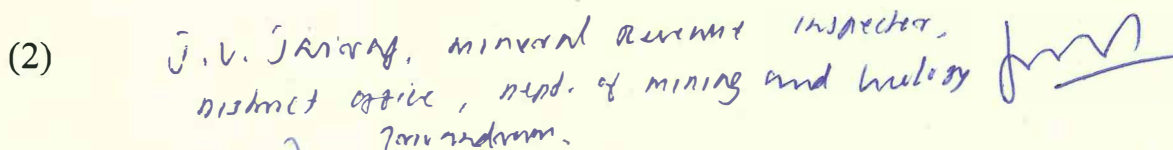 (2) J.V. Jairaj, mineral Revenue inspecter,
District office, Dept. of mining and Geology
Trivandrum.